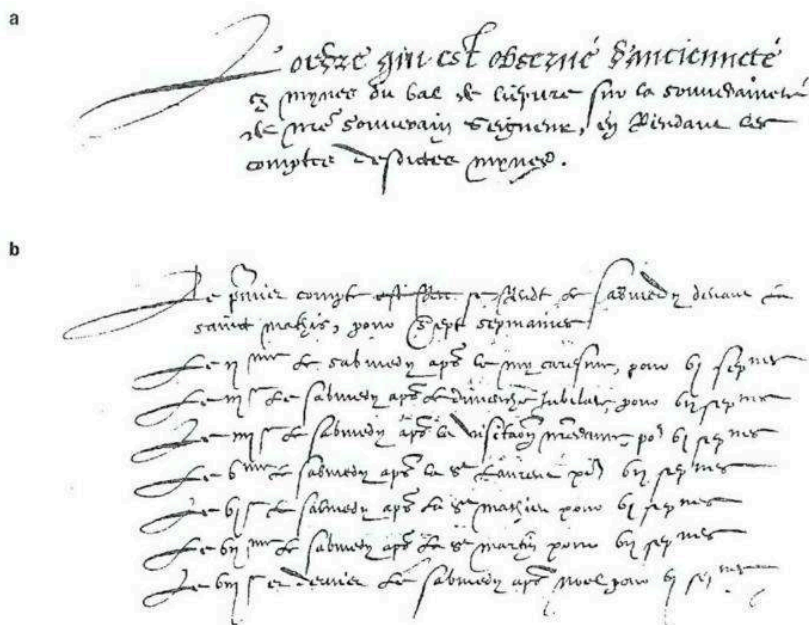 a
L'ordre qui est observé d'ancienneté
es mynes du val de lièpure sur la souveraineté
de nre souverain seigneur, en Rendant les
comptes desdictes mynes.
b
Le p̃mier compte est se Rendt le sabmedy devant la
sainct mathis, pour sept sepmaines
Le ii me le sabmedy aps le my caresme, pour vi sepnes
Le iii e le sabmedy aps le dimenche Jubilate, pour vii sepnes
Le iiii e le sabmedy aps la visitaõn nredame, por vi sepnes
Le v me le sabmedy aps la st Laurent por vii sepnes
Le vi e le sabmedy aps la st mathieu pour vi sepnes
Le vii me le sabmedy aps la st martin pour vii sepnes
Le viii e et dernier le sabmedy aps noel pour vi sepnes